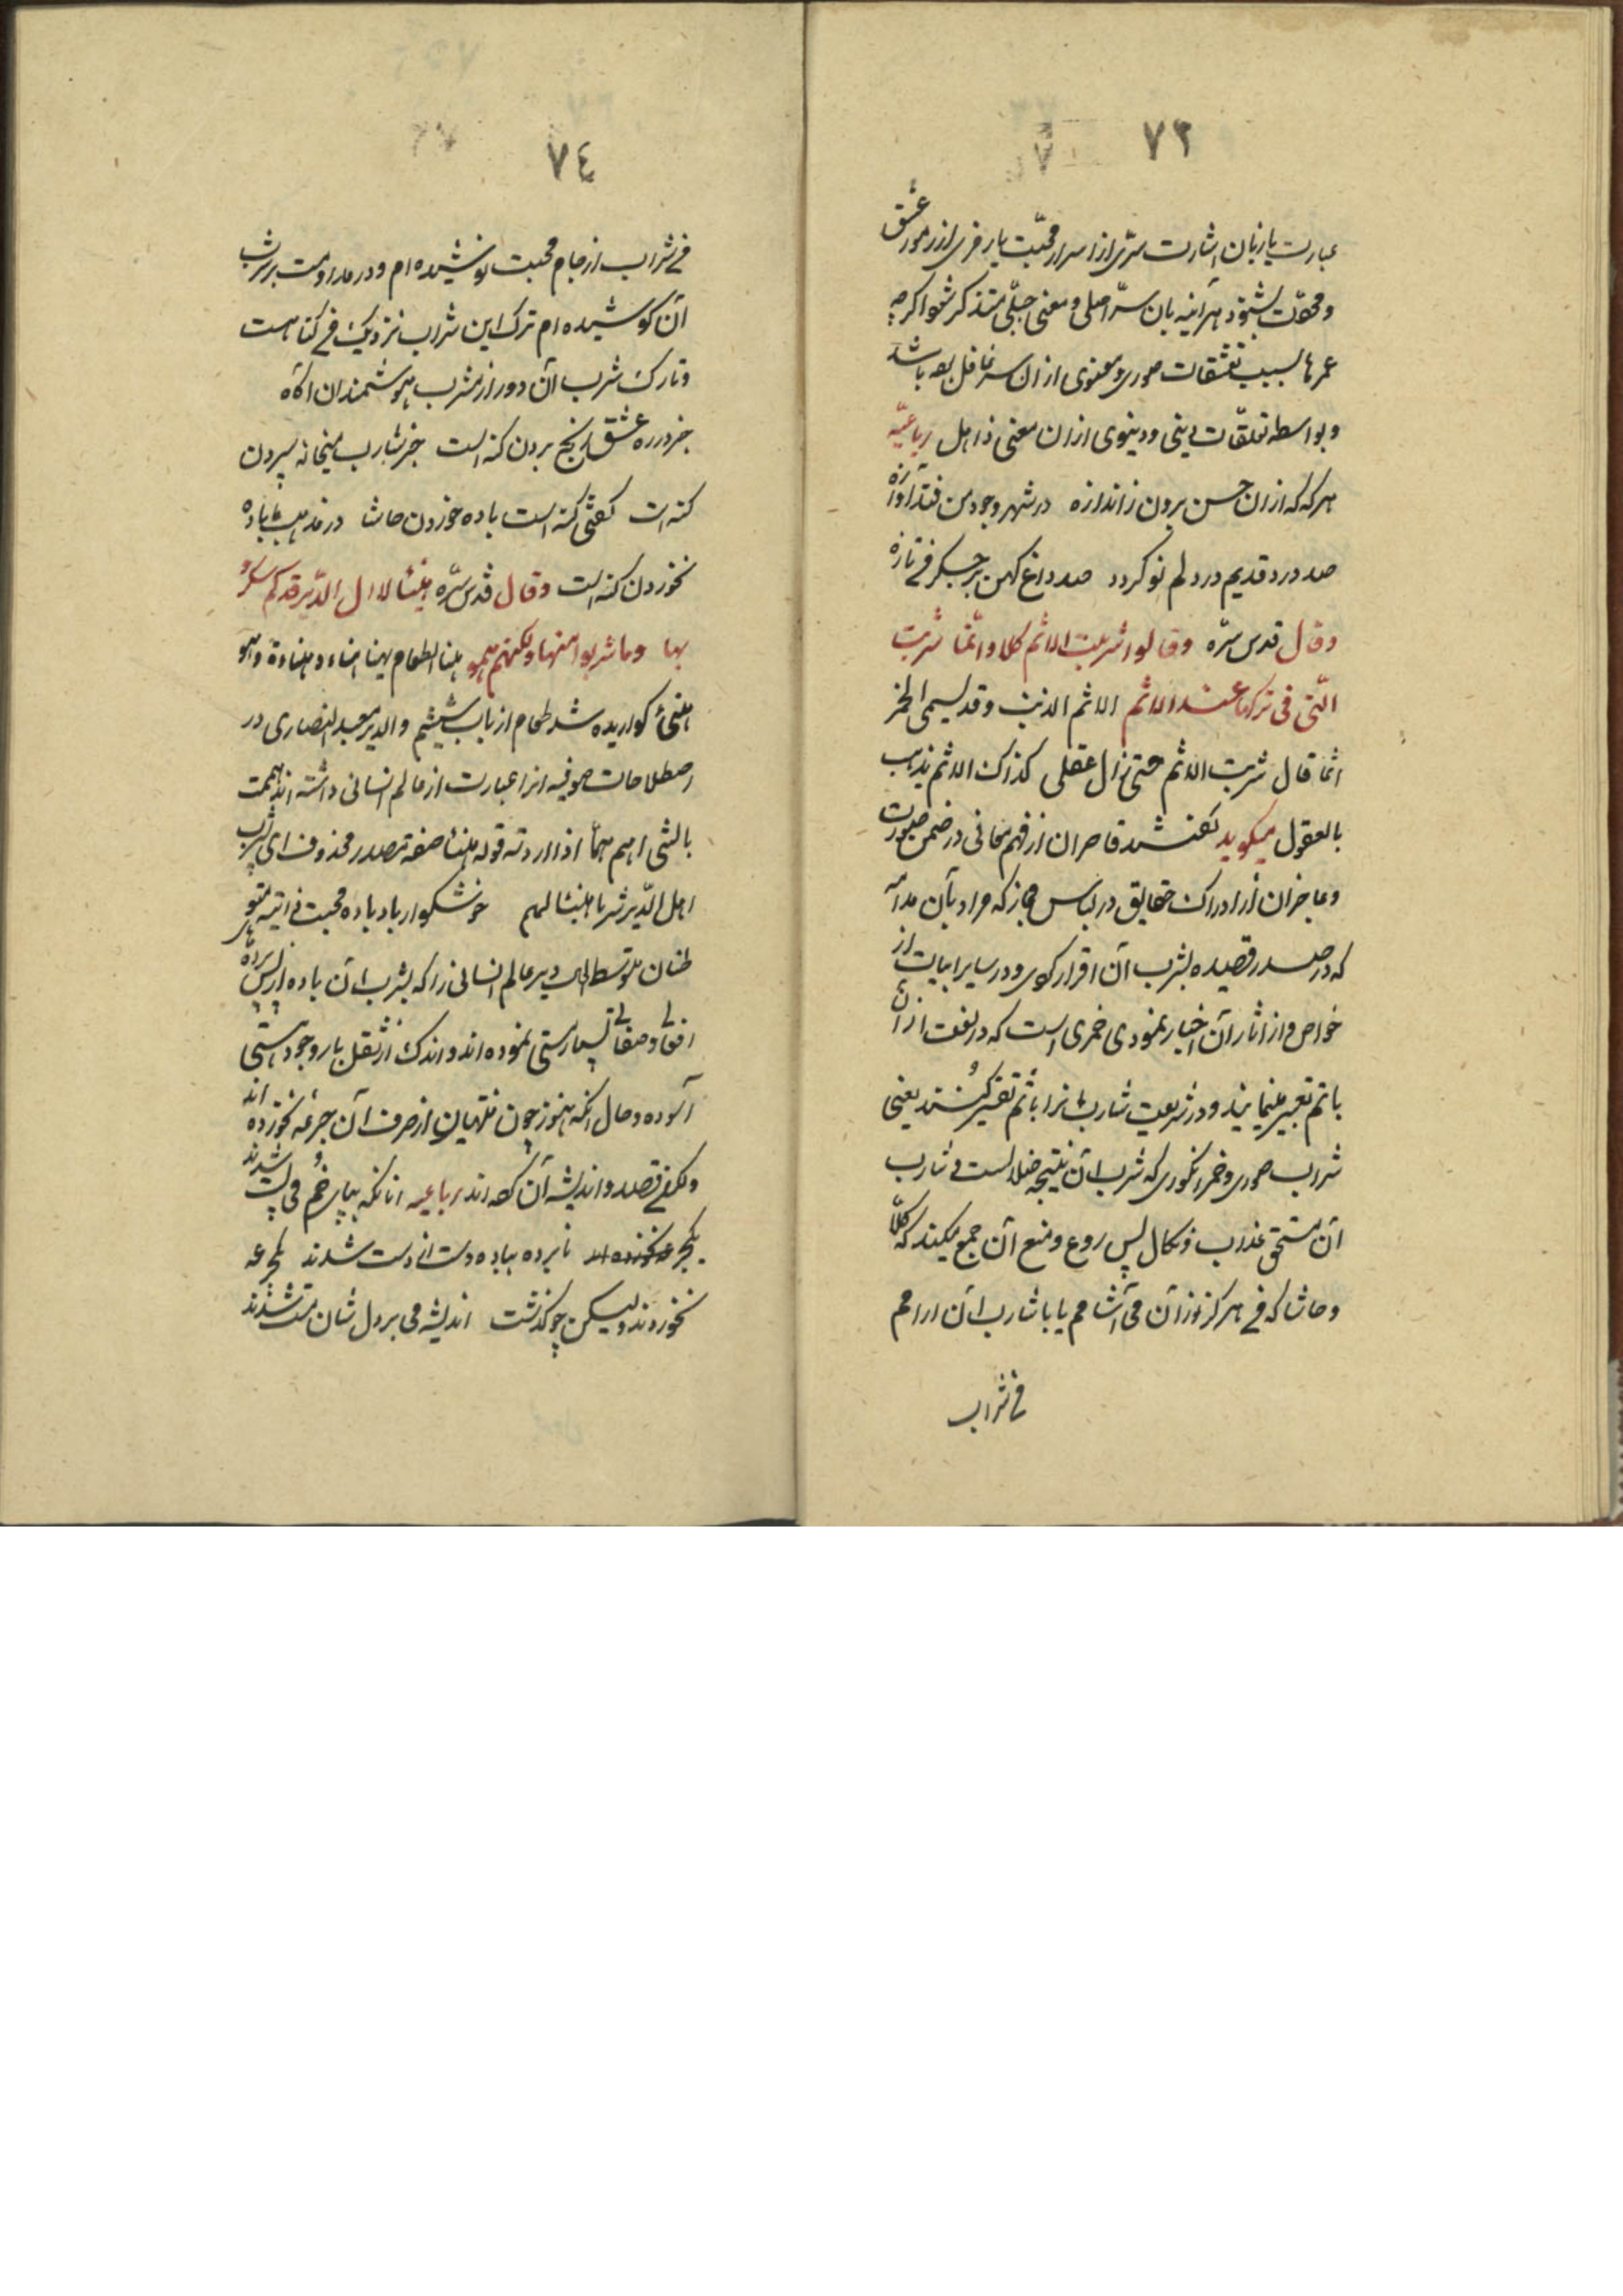 ٧٣
عبارت یا زبان اشارت سرّی از اسرار محبّت یا رمزی از رموز عشق
و محوّت بشنود هر آینه بان سرّ اصلی و معنی جبلّی متذکر شود اکرچه
عمرها بسبب تعشقات صوری و معنوی ازان سر غافل بوده باشد
و بواسطه تعلّقات دینی و دینوی ازان معنی ذاهل رباعیّه
هرکه که ازان حسن برون ز اندازه در شهر وجود من فتد آوازه
صد درد قدیم در دلم نو کردد صد داغ کهن بر جکر تازه
وقال قدس سرّه وقالوا شربت الاثم کلا وانّما شربت
الّتی فی ترکها عند الاثم الاثم الذنب وقد یسمی الخمر
اثما قال شربت الاثم حتی زال عقلی کذاک الاثم یذهب
بالعقول میکوید کفتند قاصران از فهم معانی در ضمن صورت
وعاجزان از ادراک حقایق در لباس مجاز که مراد بآن مدامه
که در صدر قصیده بشرب آن اقرار کردی و در سایر ابیات از
خواص و از اثار آن اخبار نمودی خمری است که در لغت ازان
باثم تعبیر مینمایند و در شریعت شاربانرا باثم تقریر کنند یعنی
شراب صوری و خمر انکوری که شرب آن نتیجه ضلالست و شارب
آن مستحق عذاب و نکال پس ردع و منع آن جمع میکند که کلّا
و حاشا که من هرکز از آن می آشامم یا با شارب آن ارامم
من شراب
٧٤
من شراب از جام محبت نوشیده ام و در مداومت بر شرب
آن کوشیده ام ترک این شراب نزدیک من کناهست
و تارک شرب آن دور از مشرب هوشمندان اکاه
جز در ره عشق رنج بردن کنه است جز شارب میخانه سپردن
کنه است کفتی کنه است باده خوردن حاشا در مذهب ما باده
نخوردن کنه است وقال قدس سرّه هنیئا لاهل الدّیر کم سکروا
بها وما شربوا منها ولکنهم همو هنا الطعام یهنا هناء و هناءة وهو
هنئ کواریده شد طعام از باب ششم والدیر معبد النصاری در
اصطلاحات صوفیه انرا عبارت از عالم انسانی داشته اند همت
بالشی اهم همّا اذا اردته قوله هنیئا صفة مصدر محذوف ای شرب
اهل الدّیر شربا هنیئا لهم خوشکوار باد باده محبت ذاتیه
طنان متوسط الی دیر عالم انسانی را که بشرب آن باده از پس پرده
افعالی و صفاتی بسیار مستی نموده اند و اندک از ثقل بار وجود هستی
آسوده و حال آنکه هنوز چون منتهیان از صرف آن جرعه نخورده اند
ولکن قصد و اندیشه آن کرده اند رباعیه انانکه بپای خم می پست شدند
یکجرعه نخورده اند نابرده بباده دست از دست شدند یکجرعه
نخوردند ولیکن چو کذشت اندیشه می بر دل شان مست شدند